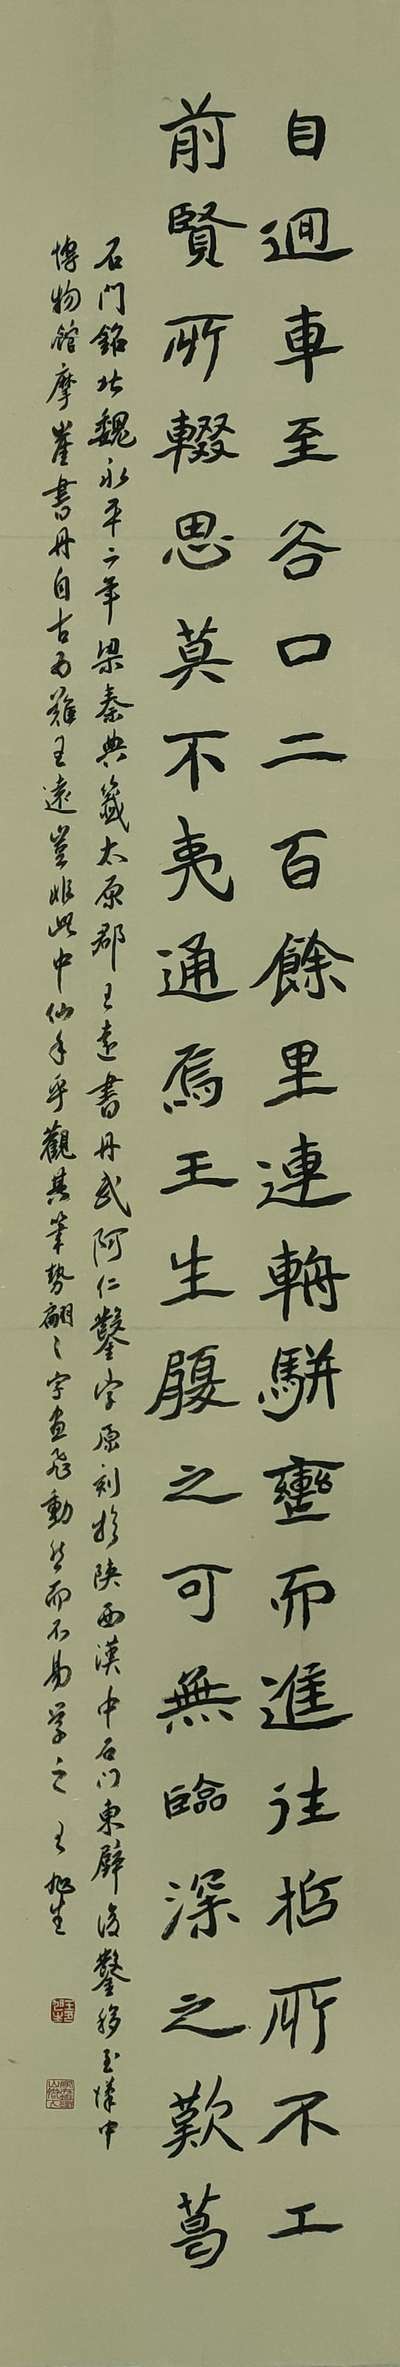 自迴車至谷口二百餘里連輈駢轡而進往哲所不工
前賢所輟思莫不夷通焉王生履之可無臨深之歎葛
石門銘北魏永平二年梁秦典籤太原郡王遠書丹武阿仁鑿字原刻於陝西漢中石門東壁後鑿移至漢中
博物館摩崖書丹自古而難王遠豈非此中仙手乎觀其筆勢翩々字畫飛動然而不易学之 王旭生